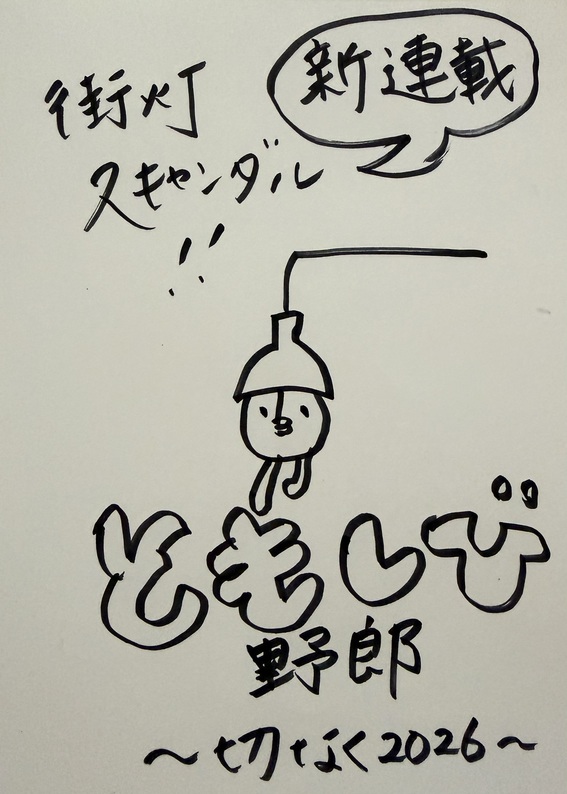 新連載
街灯
スキャンダル
!!
ともしび
野郎
～切なく2026～